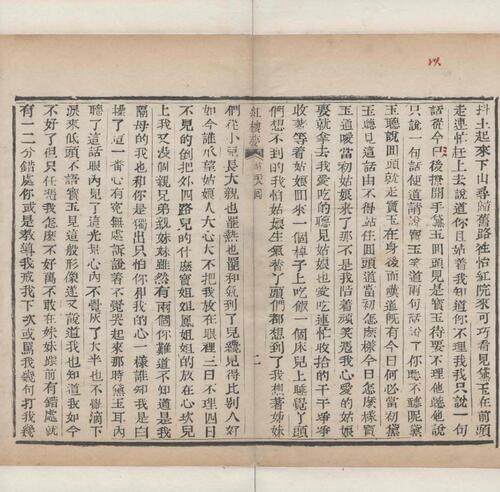 抖土起來下山尋歸舊路往怡紅院來可巧看見黛玉在前頭
走連忙赶上去說道你且站着我知道你不理我我只說一句
話從今已後撩開手黛玉回頭見是寶玉待要不理他聽他說
只說一句話便道請說寶玉笑道兩句話說了你聽不聽呢黛
玉聽說回頭就走寶玉在身後面嘆道既有今日何必當初黛
玉聽見這話由不得站住回頭道當初怎麽樣今日怎麽樣寶
玉道噯當初姑娘來了那不是我陪着頑笑凴我心愛的姑娘
要就拿去我愛吃的聽見姑娘也愛吃連忙收拾的干干凈凈
收着等着姑娘回來一個桌子上吃飯一個床兒上睡覺丫頭
們想不到的我怕姑娘生氣替丫頭們都想到了我想着姊妹
紅樓夢 第六回 二
們從小兒長大親也罷熱也罷和氣到了兒纔見得比別人好
如今誰承望姑娘人大心大不把我放在眼裡三日不理四日
不見的倒把外四路兒的什麽寶姐姐鳳姐姐的放在心坎兒
上我又沒個親兄弟親姊妹雖然有兩個你難道不知道是我
隔母的我也和你是獨出只怕你和我的心一樣誰知我是白
操了這一番心有冤無處訴說着不覺哭起來那時黛玉耳内
聽了這話眼内見了這光景心内不覺灰了大半也不覺滴下
淚來低頭不語寶玉見這般形像遂又說道我也知道我如今
不好了但只任憑我怎麽不好萬不敢在妹妹跟前有錯處就
有一二分錯處你或是教導我戒我下次或罵我幾句打我幾